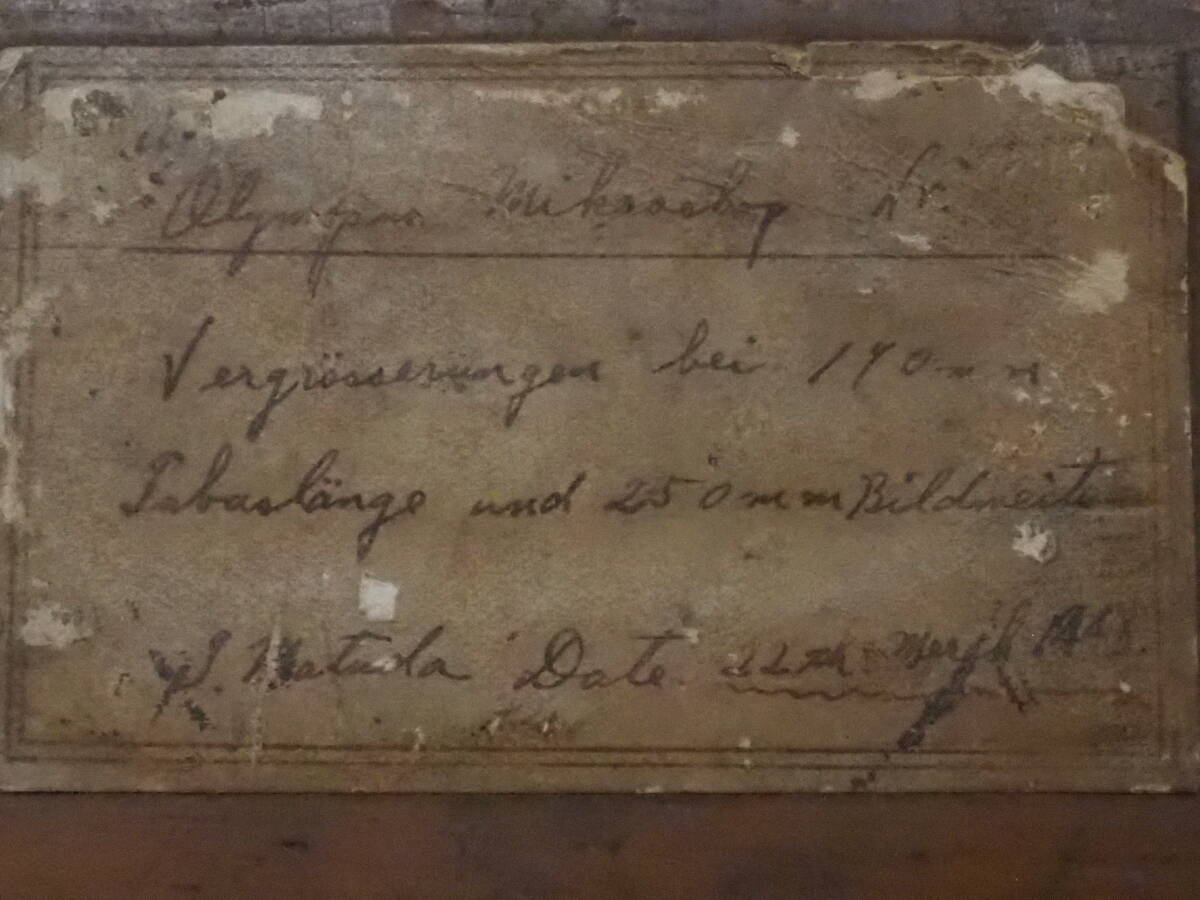 Olympus Mikroskop Nr.
Vergrösserungen bei 170mm
Tubuslänge und 250mm Bildweite
S. Matuda Date 22th